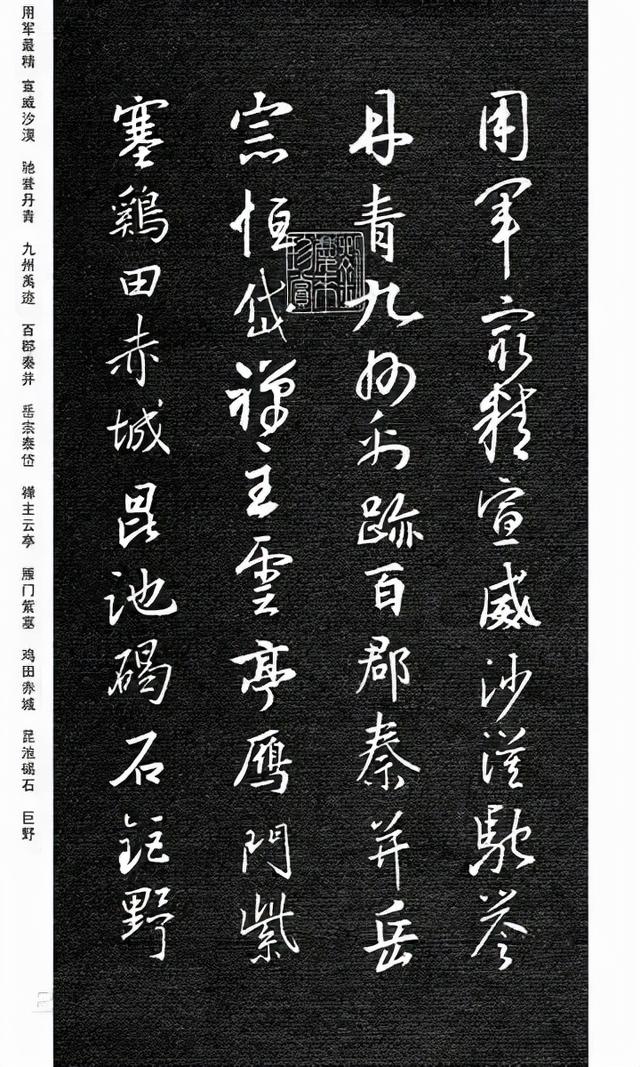 用軍最精宣威沙漠馳誉
丹青九州禹跡百郡秦并岳
宗恒岱禅主雲亭鴈門紫
塞鷄田赤城昆池碣石鉅野
用军最精 宣威沙漠 驰誉丹青 九州禹迹 百郡秦并 岳宗泰岱 禅主云亭 雁门紫塞 鸡田赤城 昆池碣石 巨野